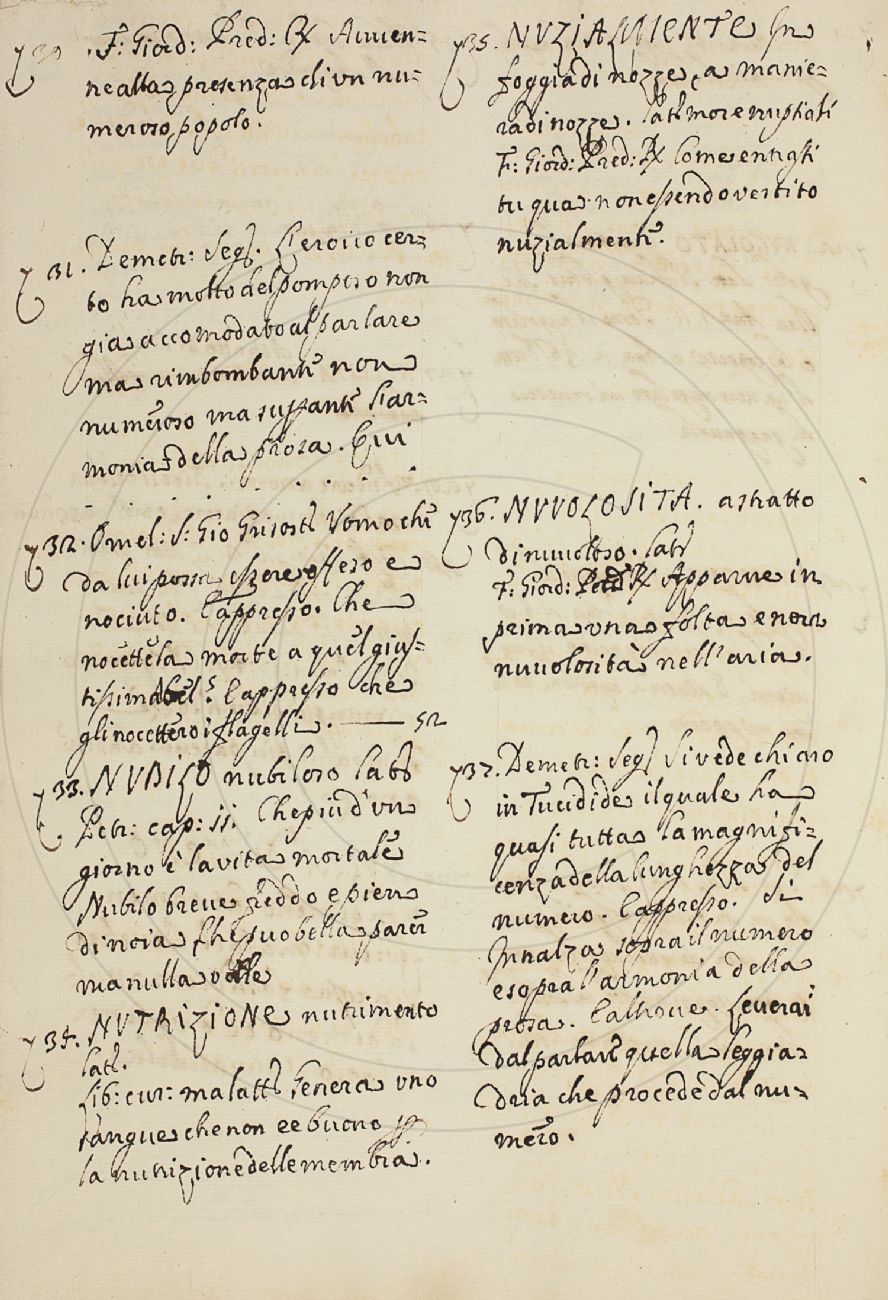 730. F: Giord: Pred: R Avven=
ne alla presenza di vn nu=
meroso popolo.
731. Demetr: Segn. L'eroico cer=
to ha molto del pomposo non
gia accomodato al parlare
ma rimbombante non
numeroso ma suffante l'ar=
monia della prosa. Qui
732. Omel: S: Gio Grisost Vomo che
da lui possa essere offeso e
nociuto. E appresso. Che
nocette la morte a quel gius=
tissimo Abel: E appresso che
gli nocettero i flagelli. — 52
733. NVBILO nubiloso lat
Petr: cap: 11. Che piu d'vn
giorno è la vita mortale
Nubilo breve freddo e pien
di noia Che puo bella parer
ma nulla vale
734. NVTRIZIONE nutrimento
lat.
Lib: cur: malatt Genera uno
sangue che non ee buono p
la nutrizione delle membra.
735. NVZIALMENTE In
foggia di nozze, a manie=
ra di nozze. lat: more nuptiali
F: Giord: Pred: R Come entrasti
tu qua non essendo vestito
nuzialmente.
736. NVVOLOSITA. astratto
di nuvoloso. lat
F: Giord: Pred R Apparve in
prima vna folta e nera
nuvolosità nell'aria.
737. Demetr: Segn Si vede chiaro
in Tucidide il quale ha
quasi tutta la magnifi=
cenza della lunghezza del
numero. E appresso. Si
Innalza sopra il numero
e sopra l'armonia della
prosa. E altrove. Leverai
dal parlare quella leggia=
dria che procede dal nu=
mero.